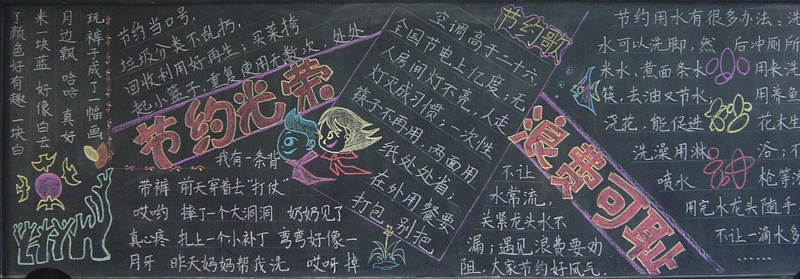 玩裤子成了一幅画
月边飘 哈哈 真好
来一块蓝 好像白云
了颜色好有趣 一块白
节约当口号，
垃圾分类不乱扔，
回收利用好再生；买菜挎
起小篮子，重复使用无数次，处处
节约光荣
我有一条背
带裤 前天穿着去"打仗"
哎哟 摔了一个大洞洞 奶奶见了
真心疼 扎上一个小补丁 弯弯好像一
月牙 昨天妈妈帮我洗 哎呀 掉
节约歌
空调高于二十六
全国节电上亿度，无
人房间灯不亮，人走
灯灭成习惯；一次性
筷子不再用，两面用
纸处处省，
在外用餐要
打包，别把
不让
水常流，
关紧龙头水不
漏；遇见浪费要劝
阻，大家节约好风气。
浪费可耻
节约用水有很多办法：洗
水可以洗脚，然 后冲厕所
米水，煮面条水 用来洗
筷，去油又节水 用养鱼
浇花，能促进 花木生
洗澡用淋 浴；不
喷水 枪等
用完水龙头随手
不让一滴水多
……